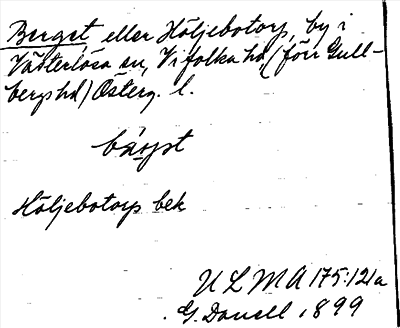 Berget eller Höljebotorp, by i
Västerlösa sn, Vifolka hd, (förr Gull-
bergs hd) Österg. l.
bärjet
Höljebotorp bek
ULMA 175:121a
G. Danell 1899